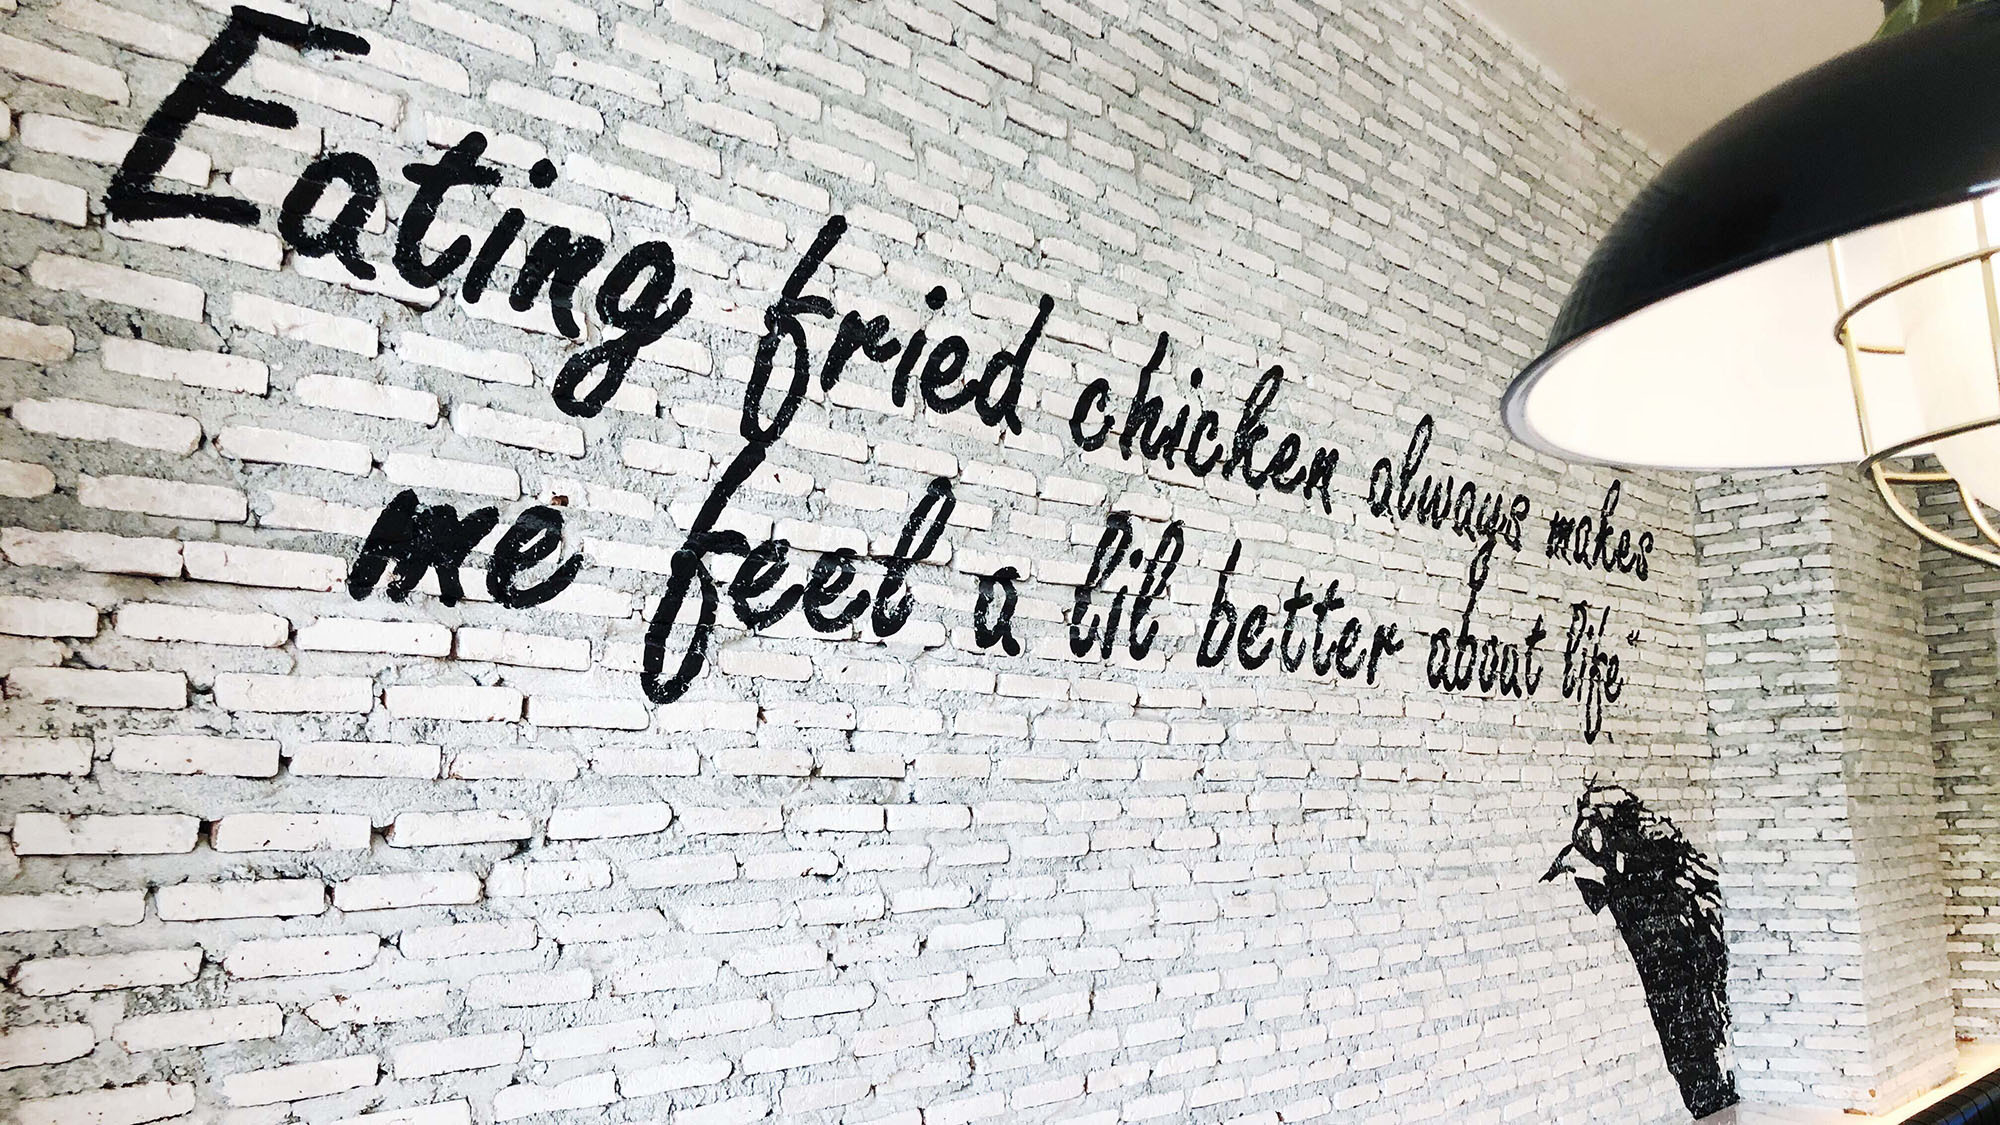 Eating fried chicken always makes
me feel a lil better about life"